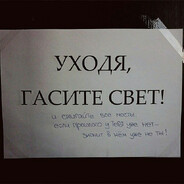 УХОДЯ,
ГАСИТЕ СВЕТ!
и сжигайте все мосты
если прошлого у тебя уже нет -
значит в нём уже не ты!